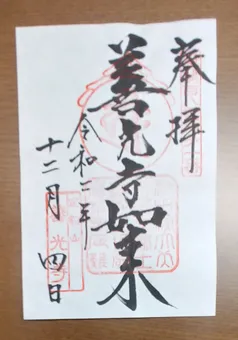 奉拝
善光寺如来
令和二年
十二月四日